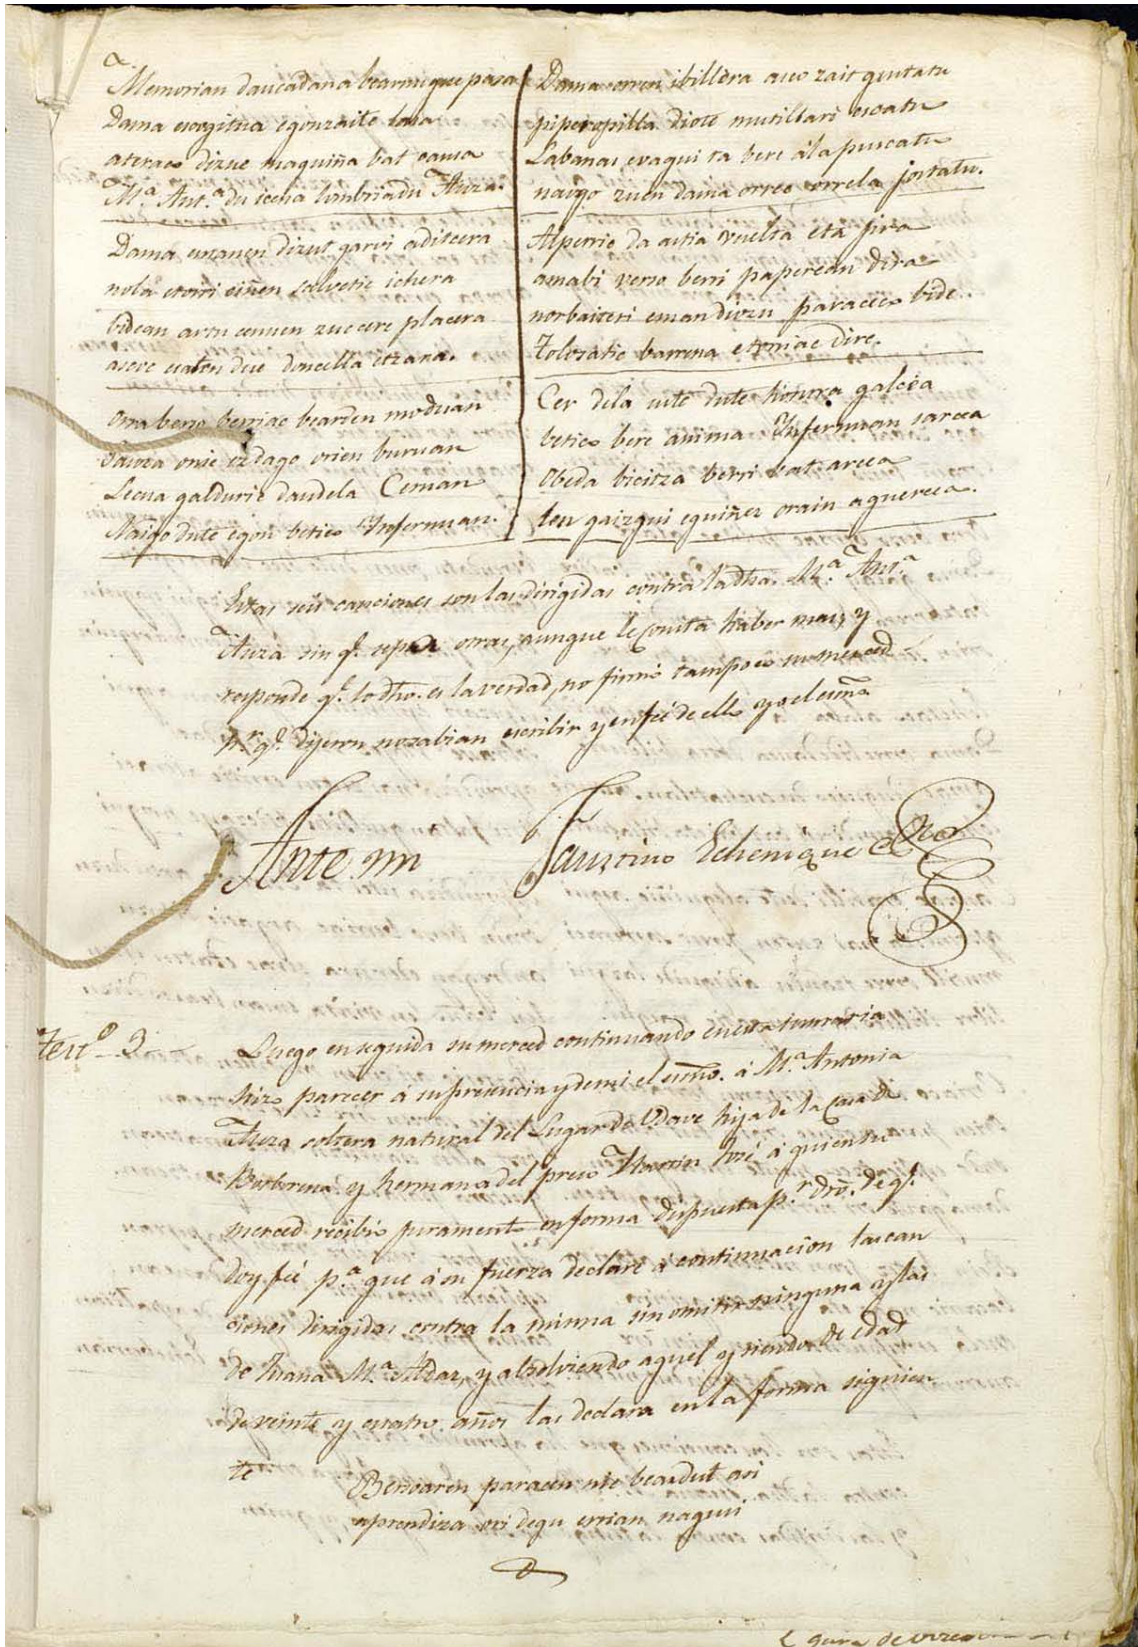 Memorian daucadana bearrugue pasa
Dama escogitua egonzaite lasa
ateraco dizue maquiña bat causa
M.ª Ant.ª du icena limbriadu Ituza.
Dama euzanen dizut garvi aditcera
nola etorri ciñen salvetic ichera
bidean artu cenuen zucere placera
asere esaten due doncella etzara.
Orra berso berriac bearden moduan
Lecua galduric daudela Ceruan
Naigo dute egon betico Infernuan.
Dama orren ibillera asco zait gustatu
piperopilla diote mutillari escatu
Labanas evaqui ta bere ala puscatu
naigo zuen dama orrec orrela jostatu.
Alperric da astia vuelta eta jira
amabi verso berri paperean dira
norbaiteri eman diozu paraceco bide
Tolosatic barrena etorriac dire.
Cer dela uste dute honra galcea
betico bere anima Infernuan sarcea
Obeda bicitza berri bat arcea
leen gaizqui eguiñez orain aguercea.
Estas seis canciones son las dirigidas contra la dha. M.ª Ant.ª
Ituza sin q.ᵉ sepa otras, aunque le consta haber mas, y
responde q.ᵉ lo dho. es la verdad, no firmó tampoco su merced
p.ʳ q.ᵉ dijeron no sabian escribir y en feé de ello yo el esno
Ante mi Faustino Echenique Esno
Test.º 3.
Luego en seguida su merced continuando en esta sumaria
hizo parecer á su presencia y de mi el esno. á M.ª Antonia
Ituza soltera natural del Lugar de Udave hija de la Casa de
y hermana del preso Martin José á quien su
merced recibió juramento en forma dispuesta p.ʳ dro. de q.ᵉ
doy feé p.ª que á su fuerza declare á continuacion las can
ciones dirigidas contra la misma sin omitir ninguna y las
de Juana M.ª Aldaz, y absolviendo aquel y siendo de edad
de veinte y cuatro años las declara en la forma siguien
te
Bersoaren paracen nic beardut asi
aprendiza ori degu errian nagusi